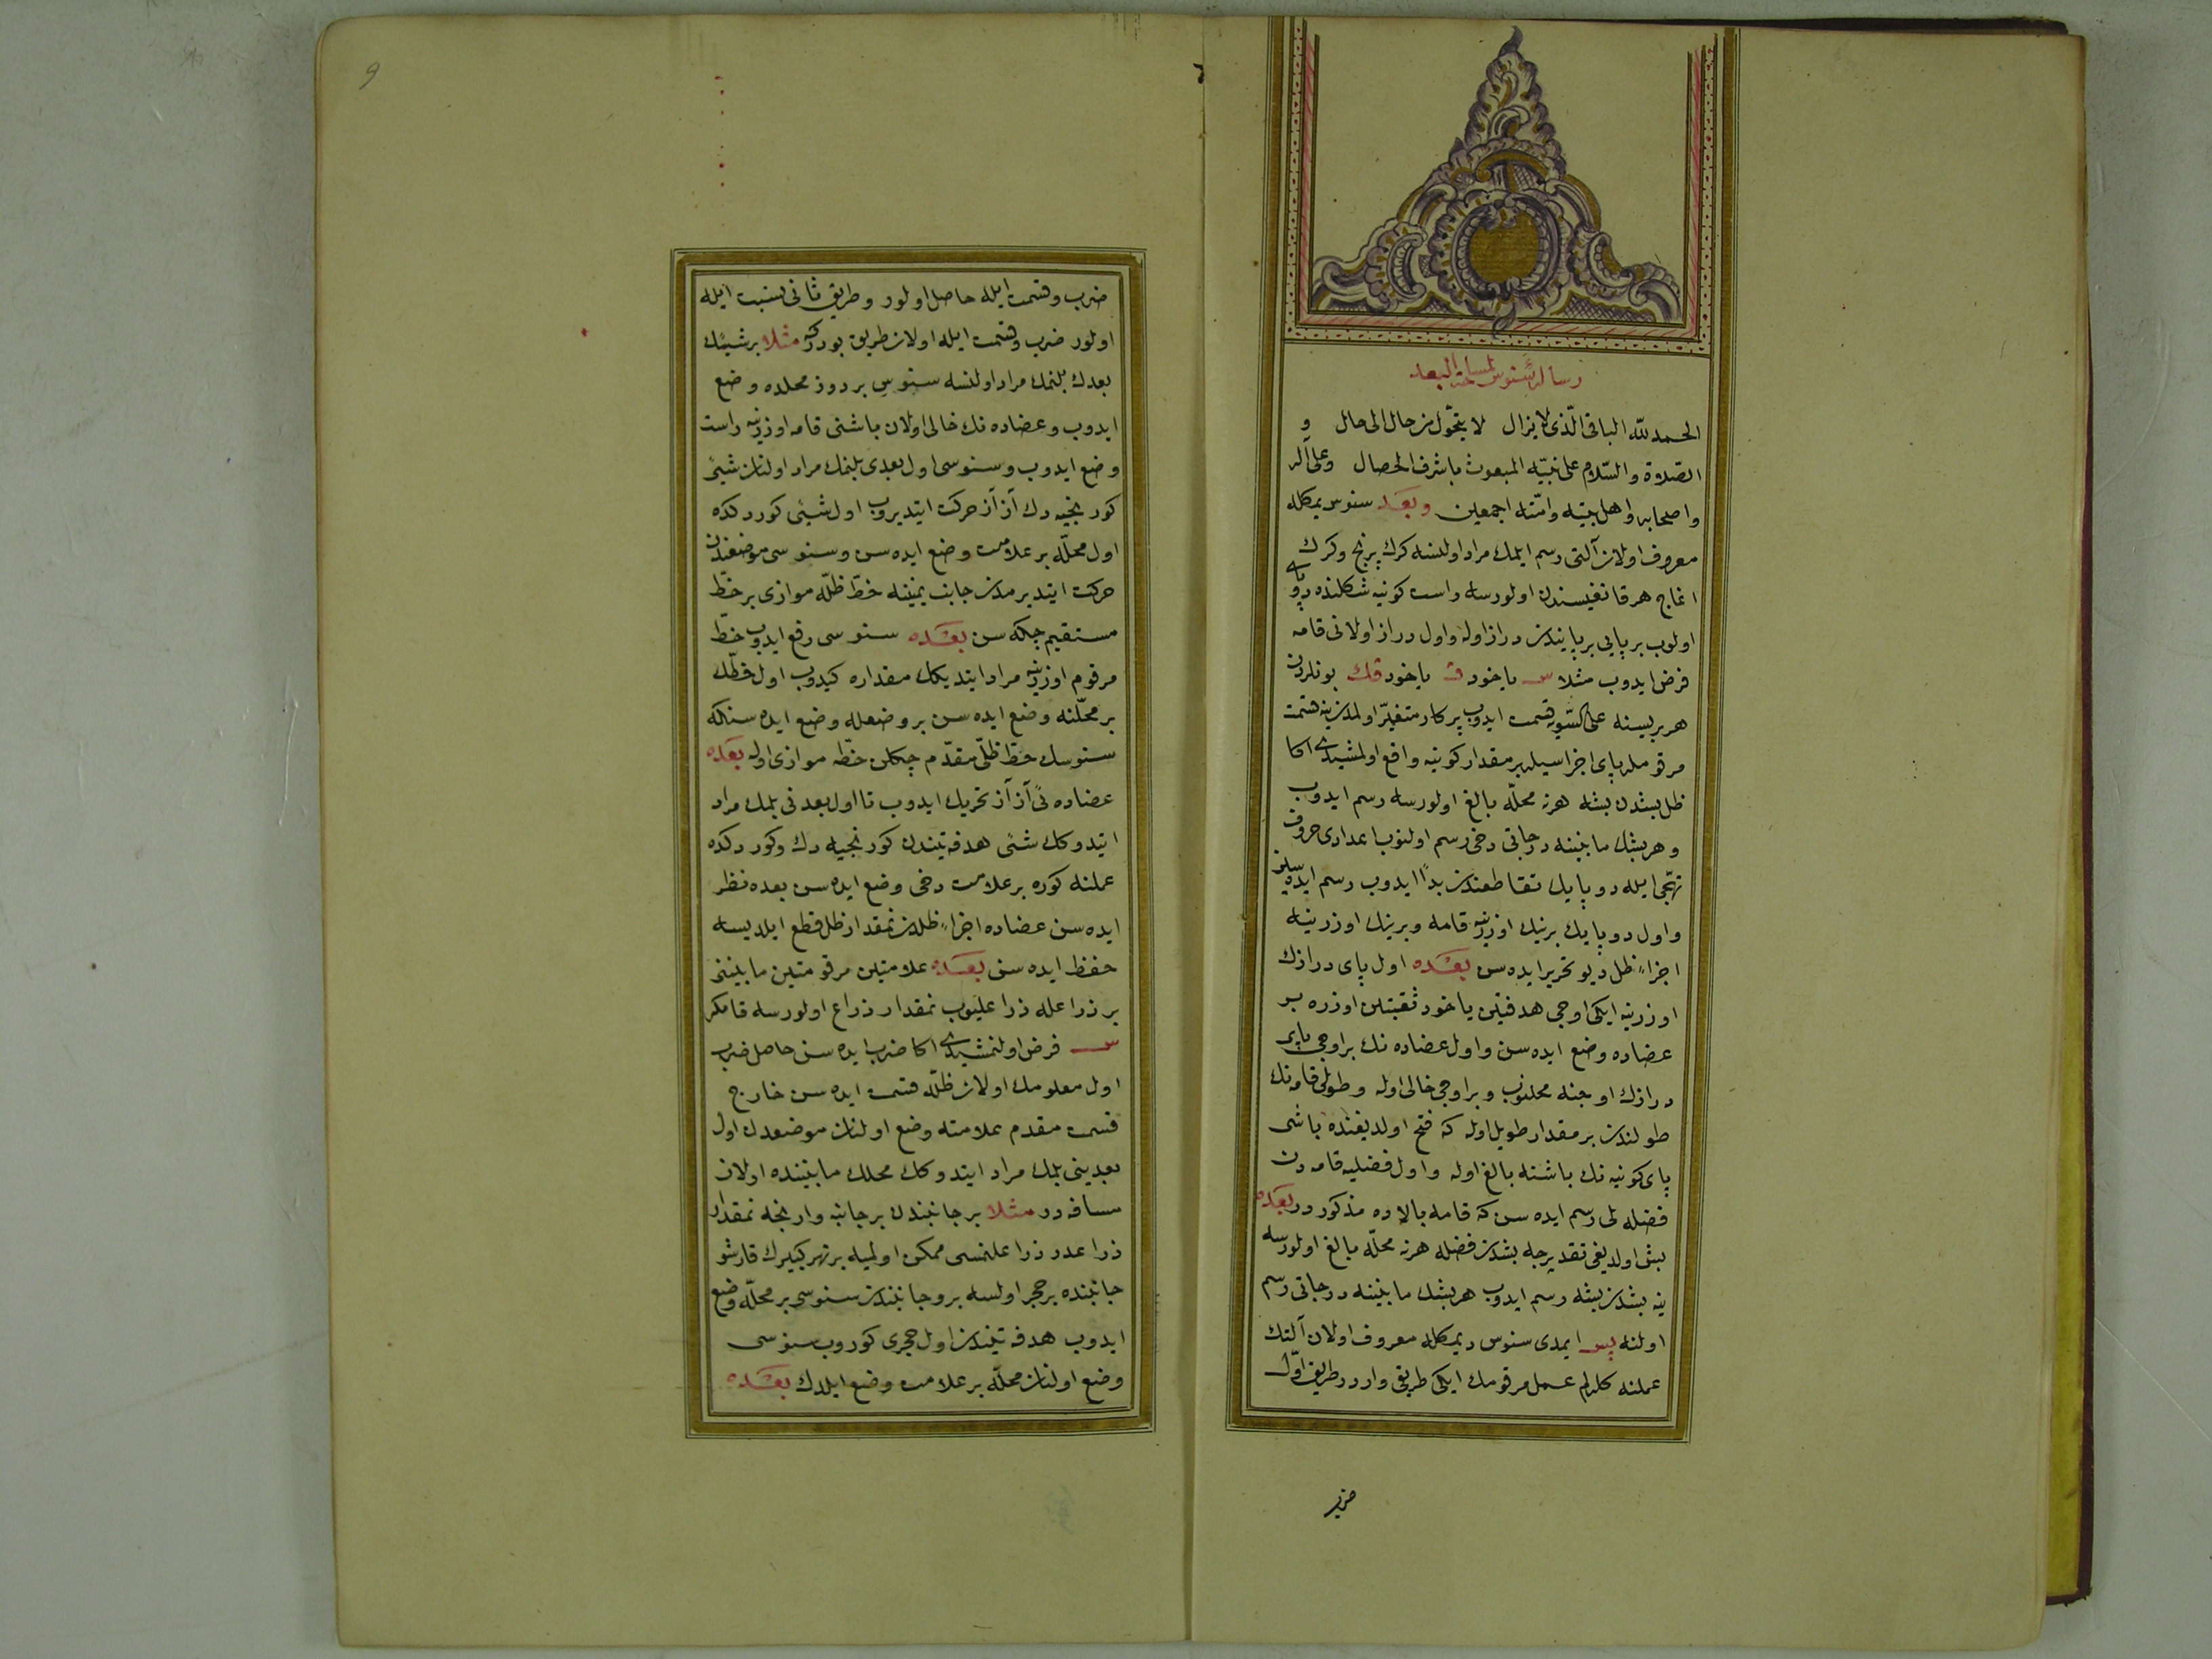 رسالۀ سنوس لمساحة البعد
الحمد لله الباقى الّذى لا يزال لا يتحوّل من حال الى حال و
الصّلاة و السّلام على نبيّه المبعوث باشرف الخصال وعلى آله
واصحابه واهل بيته وامّته اجمعين وبعد سنوس ديمكله
معروف اولان آلتى رسم ايلمك مراد اولنسه كرك پرنج وكرك
اغاج هر قانغيسندن اولورسه راست كونيه شكلنده دو پاى
اولوب بر پايى بر پايندن دراز اوله واول دراز اولانى قامه
فرض ايدوب مثلا س ياخود ق ياخود قك بونلردن
هر بريسنه على السّويه قسمت ايدوب پركار متغيّر اولمدن ينه قسمت
مرقومله پاى اجزاسيله بر مقدار كونيه واقع اولمشيدى اكا
ظل بشدن بشه هر نه محلّه بالغ اولورسه رسم ايدوب
وهر بشك مابيننه درجاتى دخى رسم اولنوب اعدادى حروف
تهجّى ايله دو پايك تقاطعندن بدأ ايدوب رسم ايده سن
واول دو پايك برينك اوزرينه قامه وبرينك اوزرينه
اجزاء ظل ديو تحرير ايده سن بعده اول پاى درازك
اوزرينه ايكى اوجى هدفتين ياخود ثقبتين اوزره بر
عضاده وضع ايده سن واول عضاده نك بر اوجى پاى
درازك اوجنه محلنوب وبر اوجى خالى اوله وطولى قامه نك
طولندن بر مقدار طويل اوله كه فتح اولديغنده باشى
پاى كونيه نك باشنه بالغ اوله واول فضليه قامه دن
فضله لى رسم ايده سن كه قامه بالاده مذكور در بعده
بش اولديغى تقديرجه بشدن فضله هر نه محلّه بالغ اولورسه
ينه بشدن بشه رسم ايدوب هر بشك مابيننه درجاتى رسم
اولنه پس ايمدى سنوس ديمكله معروف اولان آلتك
عملنه كله لم عمل مرقومك ايكى طريقى وار در طريق اوّل
ضرب
ضرب وقسمت ايله حاصل اولور وطريق ثانى نسبت ايله
اولور ضرب وقسمت ايله اولان طريق بودركه مثلا بر شيئك
بعدك بلنمك مراد اولنسه سنوس بر دوز محلده وضع
ايدوب وعضاده نك خالى اولان باشنى قامه اوزرينه راست
وضع ايدوب وسنوسى اول بعدى بلنمك مراد اولنان شيئى
كورنجيه دك آز آز حركت ايتديروب اول شيئى كوردكده
اول محلّه بر علامت وضع ايده سن وسنوسى موضعندن
حركت ايتديرمدن جانب يميننه خطّ ظلّه موازى بر خطّ
مستقيم چكه سن بعده سنوسى رفع ايدوب خطّ
مرقوم اوزرينه مراد ايتديكك مقداره كيدوب اول خطّك
بر محلّنه وضع ايده سن بر وضعله وضع ايده سنكه
سنوسك خطّ ظلّى مقدّم چكلن خطّه موازى اوله بعده
عضاده نى آز آز تحريك ايدوب تا اول بعدنى بلمك مراد
ايتدوكك شئى هدفتيندن كورنجيه دك وكوردكده
عملنه كوره بر علامت دخى وضع ايده سن بعده نظر
ايده سن عضاده اجزاء ظلدن نمقدار ظل قطع ايلديسه
حفظ ايده سن بعده علامتين مرقومتين مابينن
بر ذراعله ذراعلنوب نمقدار ذراع اولورسه قامكز
س فرض اولنمشيدى اكا ضرب ايده سن حاصل ضرب
اول معلومك اولان ظلّه قسمت ايده سن خارج
قسمت مقدم علامته وضع اولنان موضعدك اول
بعدينى بلمك مراد ايتدوكك محلك مابيننده اولان
مسافه در مثلا بر جانبدن بر جانبه وارنجه نمقدار
ذراعدر ذراعلنمسى ممكن اولميه بر نهر كبيرك قارشو
جانبنده بر حجر اولسه بر وجانبندن سنوسى بر محلّه وضع
ايدوب هدفتيندن اول حجرى كوروب سنوسى
وضع اولنان محلّه بر علامت وضع ايلدك بعده